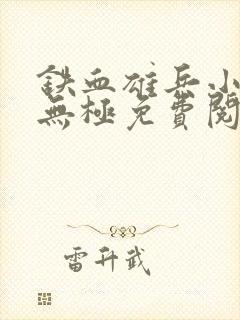 铁血雄兵小
無極免費閱
雷升武